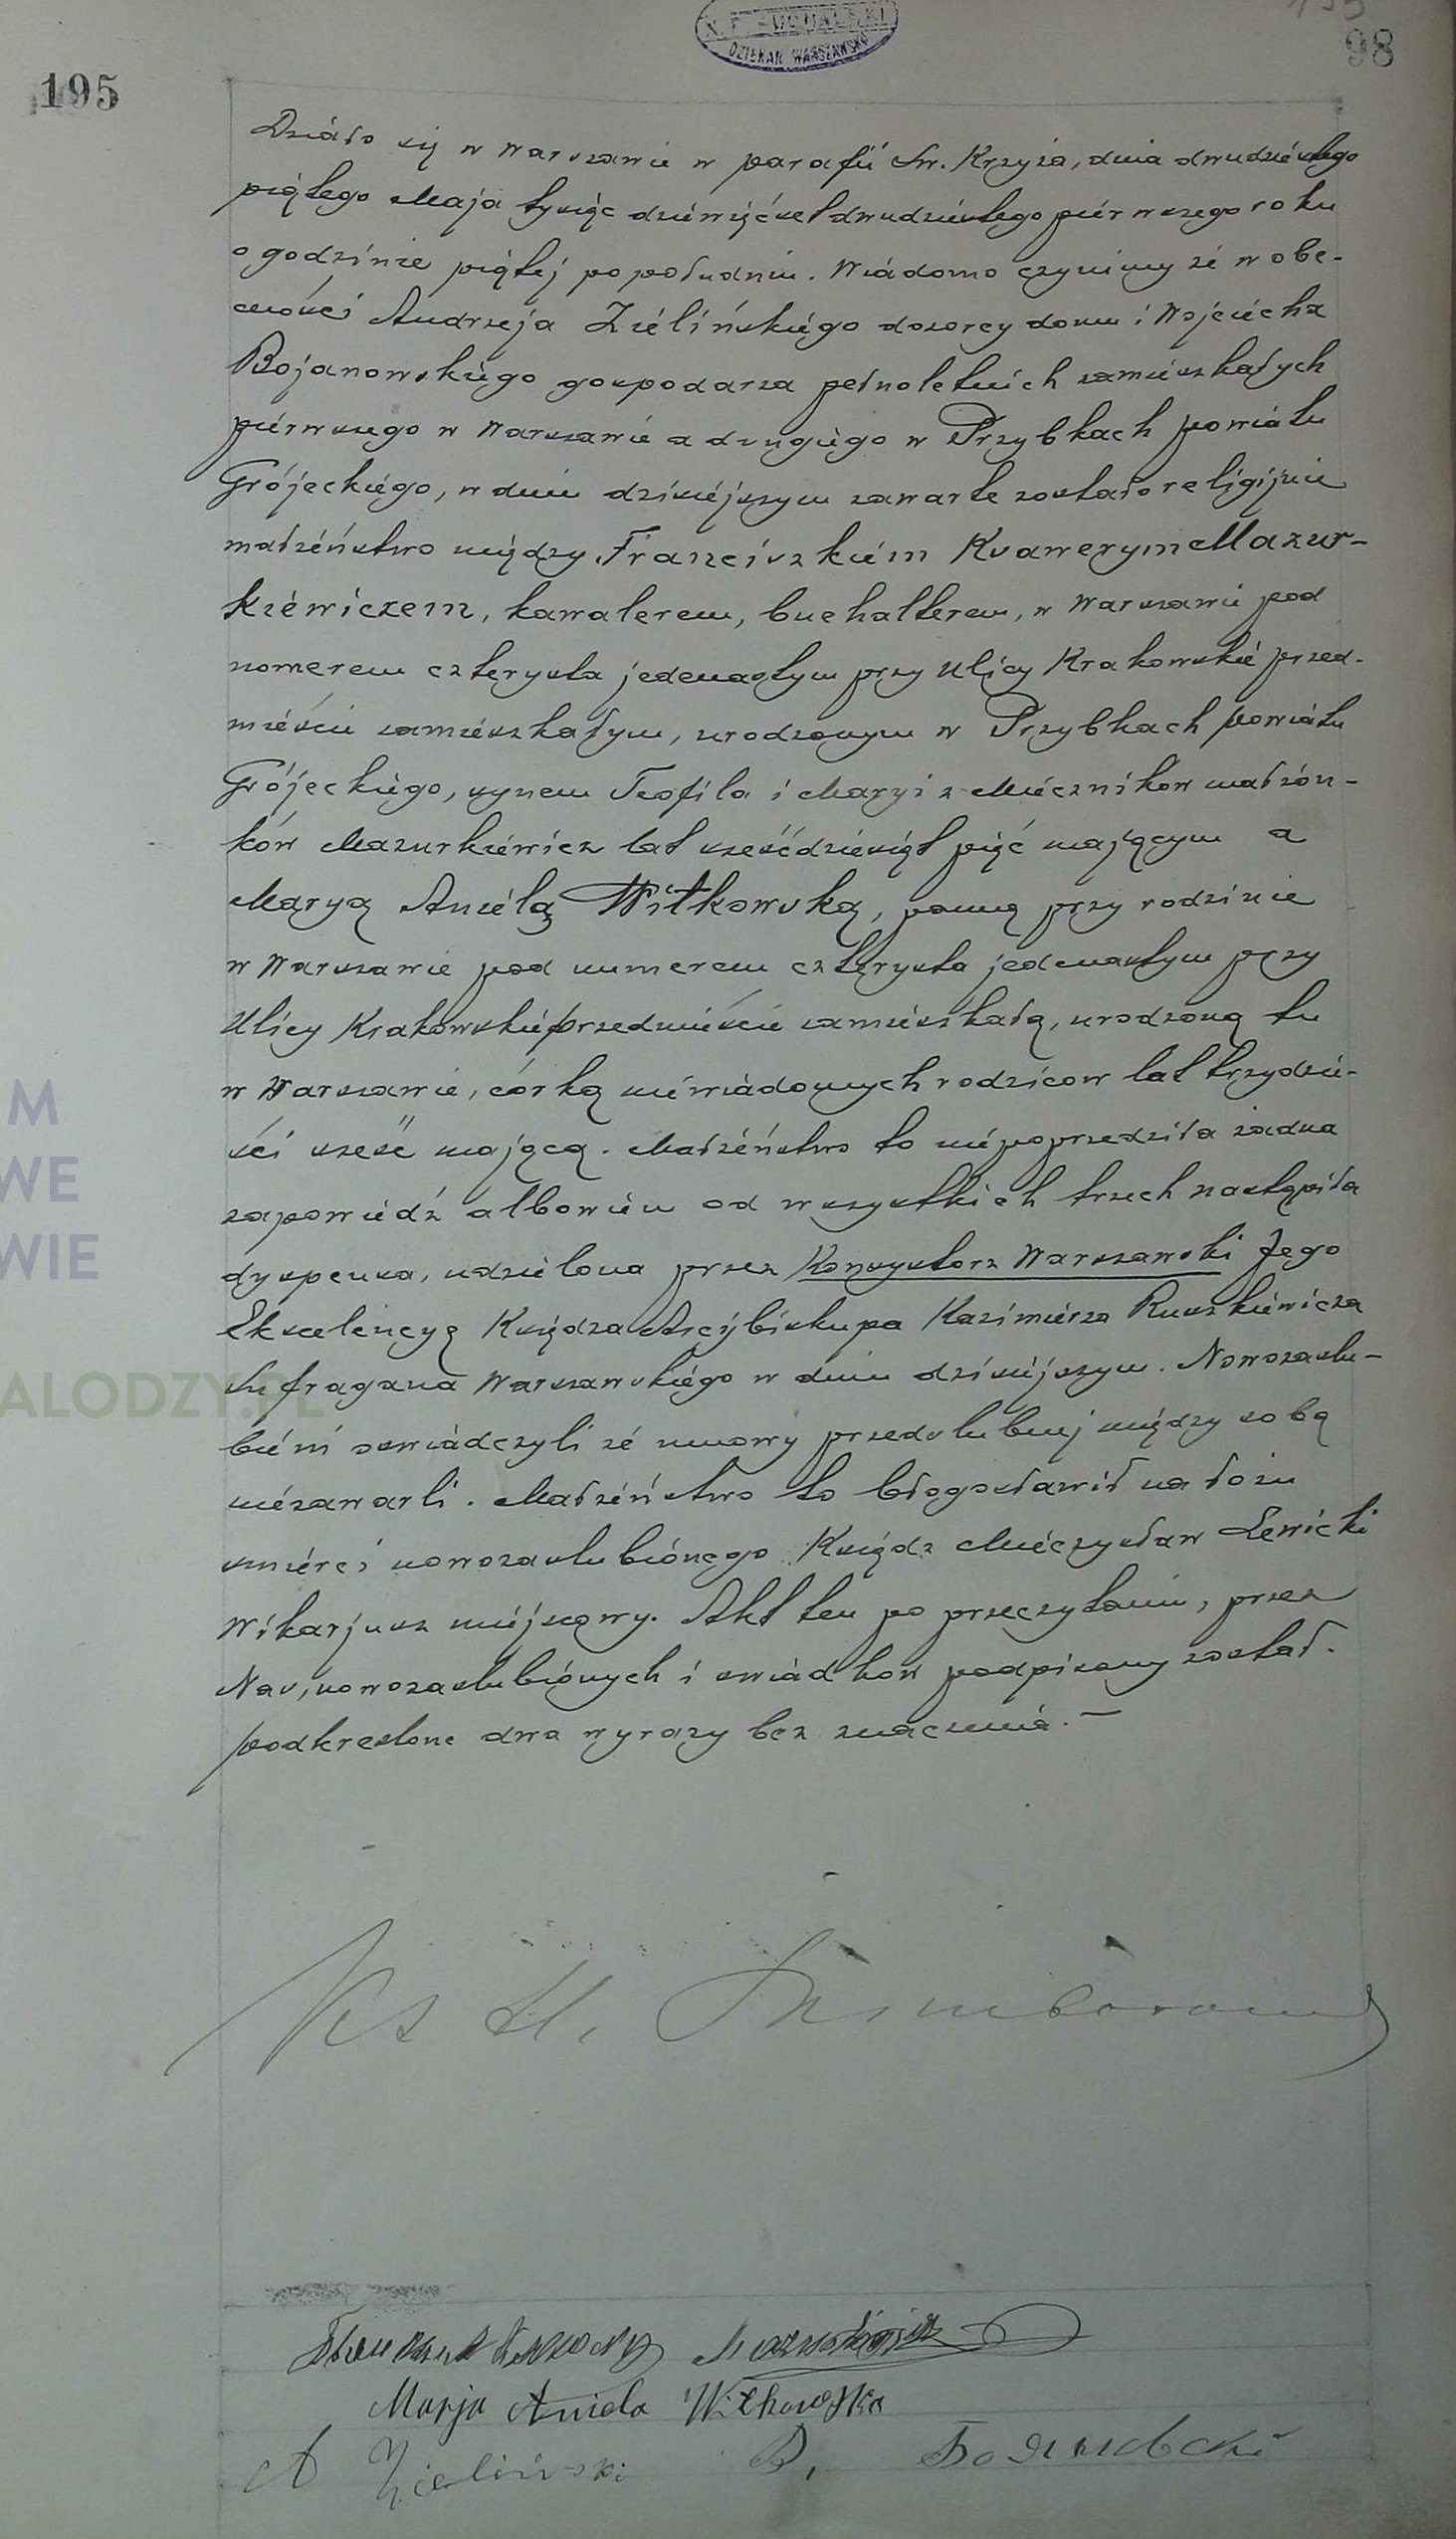 DZIEKAN WARSZAWSKI
98
195
Działo się w Warszawie w parafii Św. Krzyża, dnia dwudziestego
piątego Maja tysiąc dziewięćset dwudziestego pierwszego roku
o godzinie piątej po południu. Wiadomo czynimy że w obe-
cności Andrzeja Zielińskiego dozorcy domu i Wojciecha
Bojanowskiego gospodarza pełnoletnich zamieszkałych
pierwszego w Warszawie a drugiego w Przybkach powiatu
Grójeckiego, w dniu dzisiejszym zawarte zostało religijnie
małżeństwo między Franciszkiem Ksawerym Mazur-
kiewiczem, kawalerem, buchalterem, w Warszawie pod
nomerem czterysta jedenastym przy Ulicy Krakowskie przed-
mieście zamieszkałym, urodzonym w Przybkach powiatu
Grójeckiego, synem Teofila i Maryi z Mieczników małżon-
ków Mazurkiewicz lat sześćdziesiąt pięć mającym a
Maryą Anielą Witkowską, panną przy rodzinie
w Warszawie pod numerem czterysta jedenastym przy
Ulicy Krakowskie przedmieście zamieszkałą, urodzoną tu
w Warszawie, córką niewiadomych rodziców lat trzydzie-
ści sześć mającą. Małżeństwo to niepoprzedziła żadna
zapowiedź albowiem od wszystkich trzech nastąpiła
dyspensa, udzielona przez Konsystorz Warszawski Jego
Ekscelencyę Księdza Arcybiskupa Kazimierza Ruszkiewicza
Sufragana Warszawskiego w dniu dzisiejszym. Nowozaślu-
bieni oswiadczyli że umowy przedślubnej między sobą
niezawarli. Małżeństwo to błogosławił na łożu
śmierci nowozaslubionego Ksiądz Mieczysław Lewicki
Wikarjusz miejscowy. Akt ten po przeczytaniu, przez
Nas, nowozaslubionych i swiadkow podpisany został.
podkreslone dwa wyrazy bez znaczenia. —
Ks
Franciszek Ksawery Mazurkiewicz
Marja Aniela Witkowska
A Zieliński